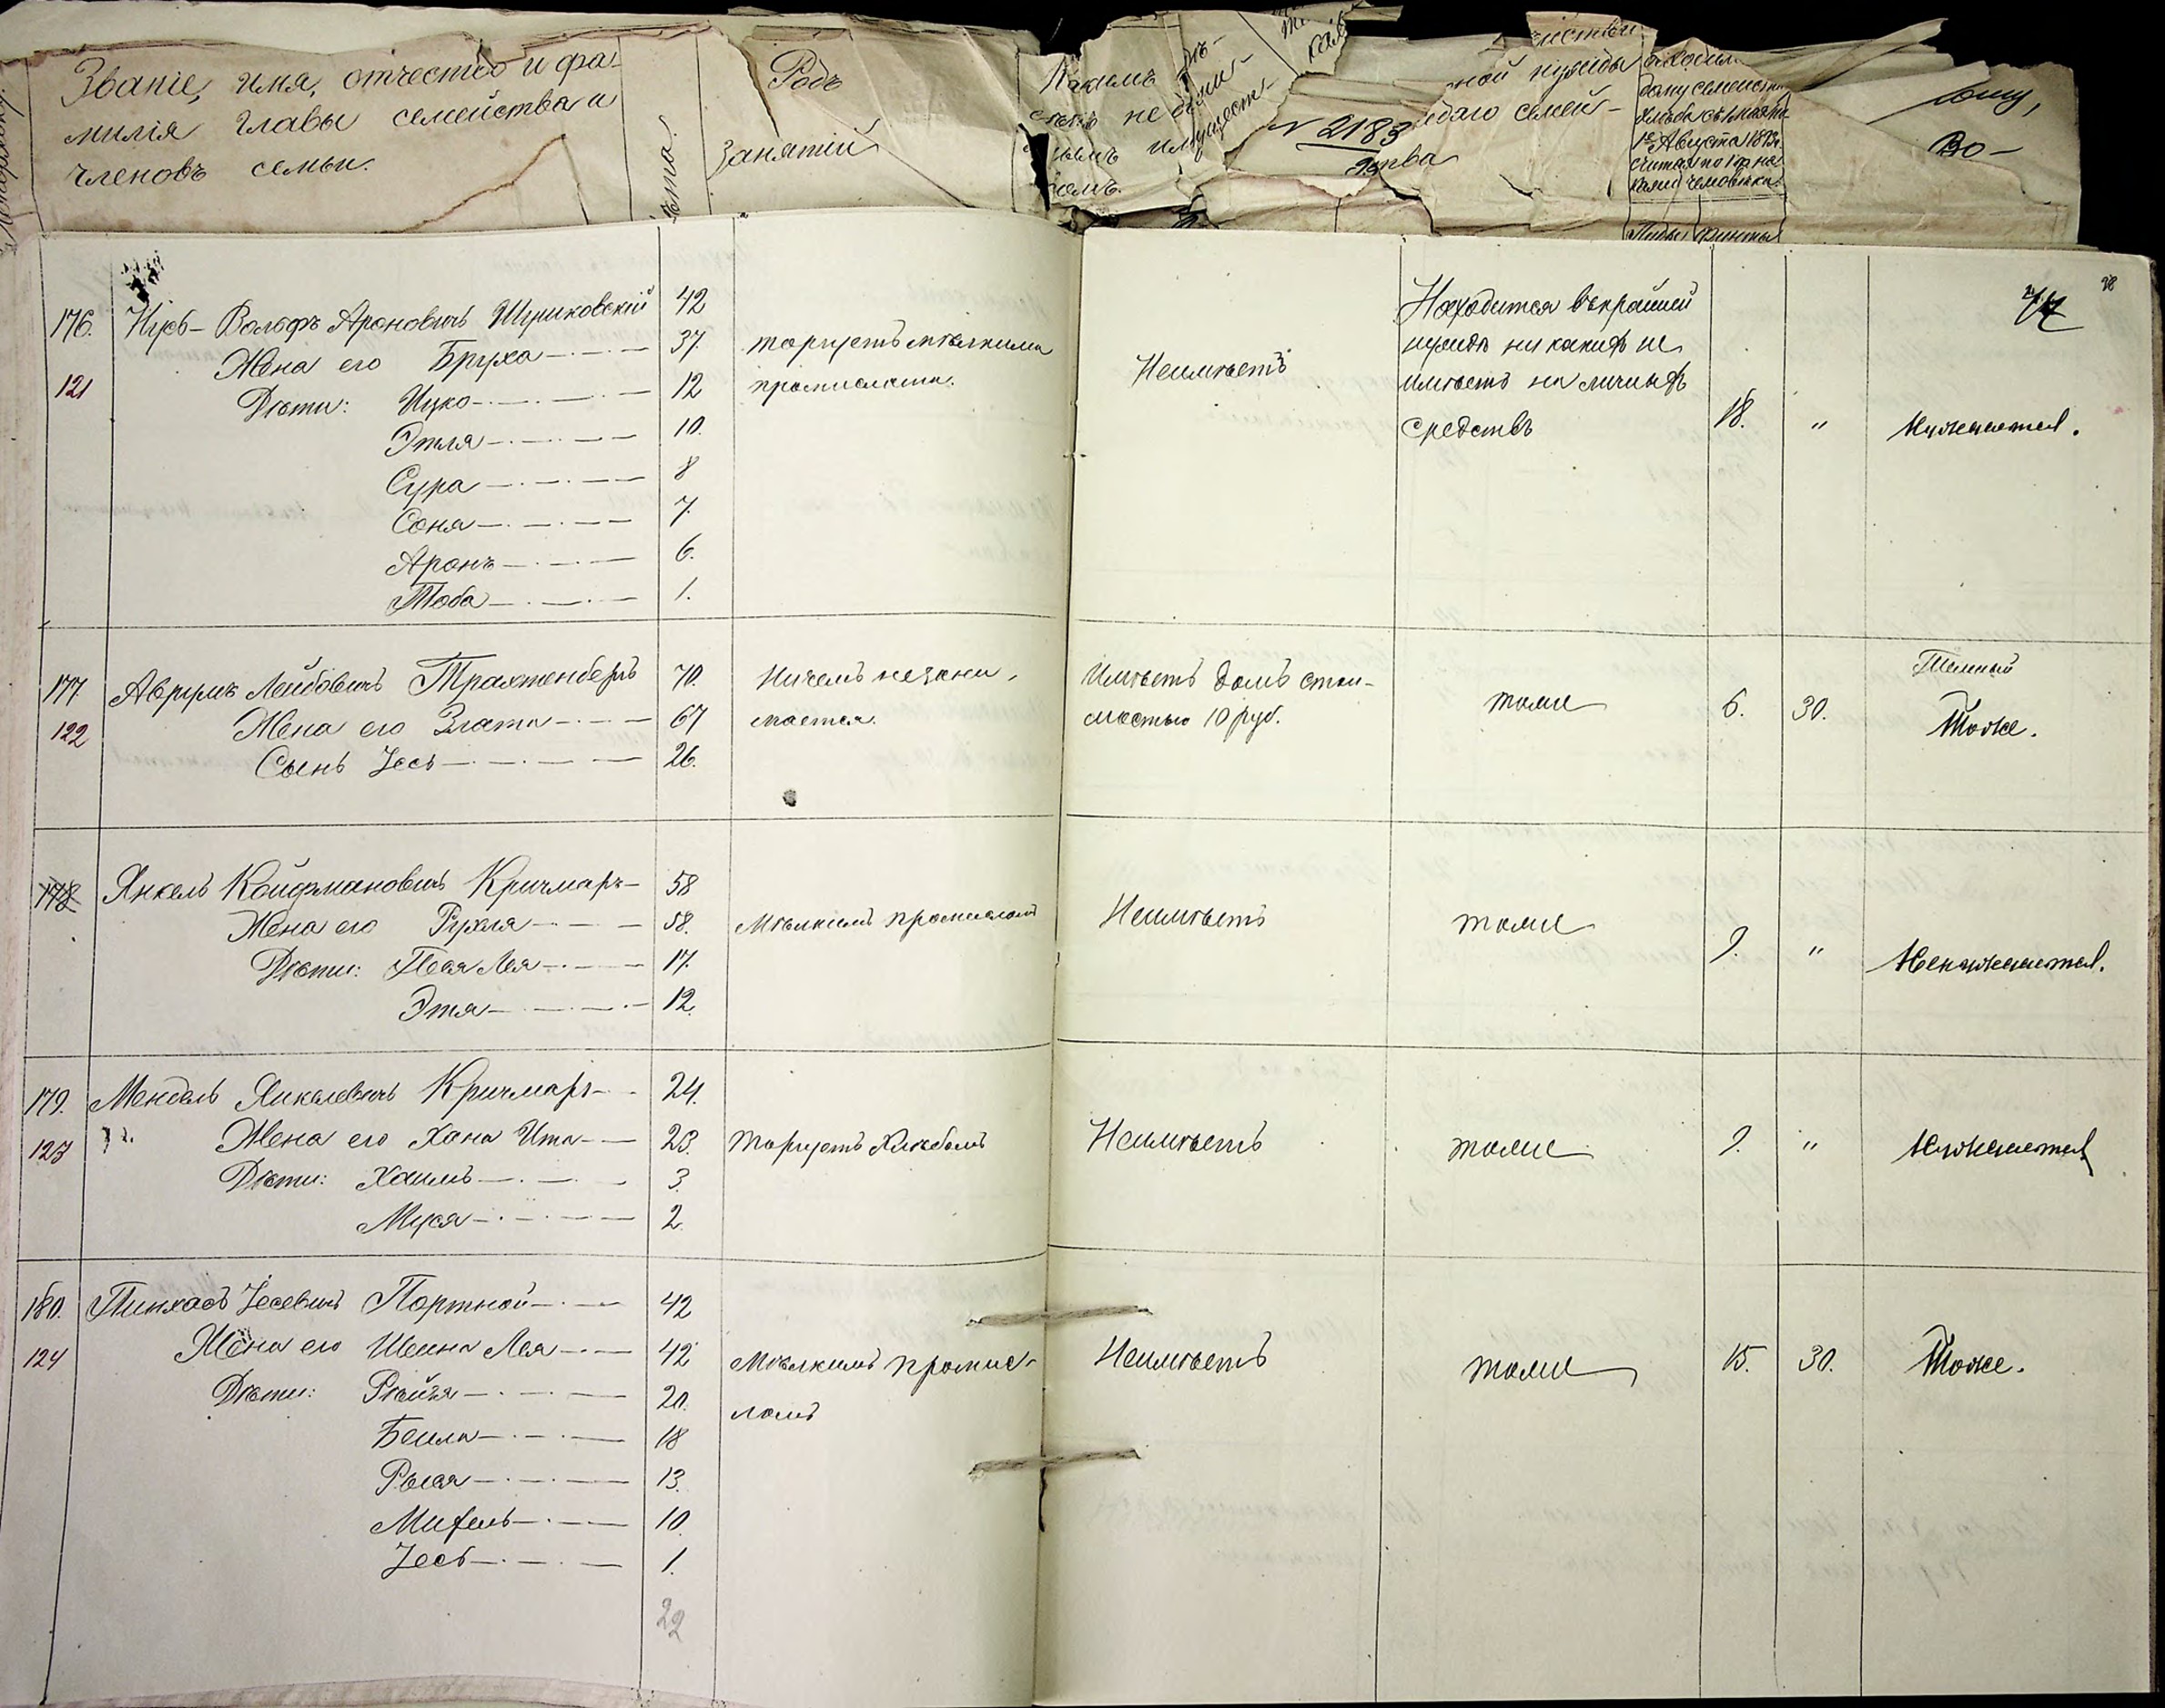 Званіе, имя, отчество и фа-
милія главы семейства и
членовъ семьи.
Родъ
занятій
Какимъ
не
N 2183
ства
ной нужды
семей-
1е Августа 189
Пуды Фунты
ому,
Во-
176. Вольфъ Ароновичъ 42
Жена его Бруха 37.
121 Дѣти: Ицко 12
Этля 10.
Сура 8
Соня 7.
Аронъ 6.
Тоба 1.
торгуетъ мѣлкими
промислами.
Неимѣетъ
Находится въ крайней
нужде ни какихъ не
имѣетъ на личныхъ
средствъ
18. " нуждается.
177 Аврумъ Лейбовичъ Трахтенберъ 70.
122 Жена его Злата 67
Сынъ Іось 26.
Ничемъ незани-
мается.
Имѣетъ домъ стои-
мостью 10 руб.
тоже 6. 30. Тоже.
178 Янкель Койфмановичъ Кричмаръ 58
Жена его Рухля 58.
Дѣти: Песя Лея 17.
Этя 12.
Мѣлкимъ промисломъ
Неимѣетъ тоже 9. " Ненуждается.
179. Мендель Янкелевичъ Кричмаръ 24.
123 Жена его Хана Ита 23.
Дѣти: Хаимъ 3.
Муся 2.
Торгуетъ Хлѣбомъ
Неимѣетъ тоже 9. " нуждается
180. Пинхасъ Іосевичъ Портной 42
124 Жена его Шеина Лея 42
Дѣти: Рейзя 20.
Бейла 18
Рыся 13.
10.
Іось 1.
Мѣлкимъ промис-
ломъ
Неимѣетъ тоже 15. 30. Тоже.
22